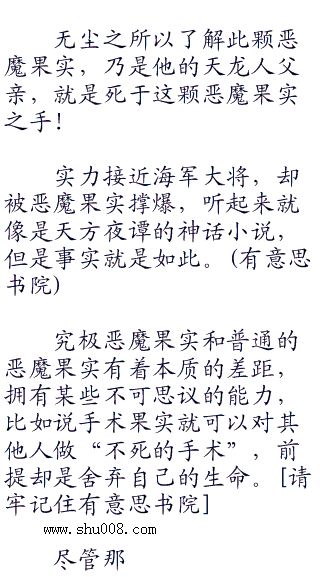 无尘之所以了解此颗恶
魔果实，乃是他的天龙人父
亲，就是死于这颗恶魔果实
之手！
实力接近海军大将，却
被恶魔果实撑爆，听起来就
像是天方夜谭的神话小说，
但是事实就是如此。(有意思
书院)
究极恶魔果实和普通的
恶魔果实有着本质的差距，
拥有某些不可思议的能力，
比如说手术果实就可以对其
他人做“不死的手术”，前
提却是舍弃自己的生命。[请
牢记住有意思书院]
www.shu008.com
尽管那